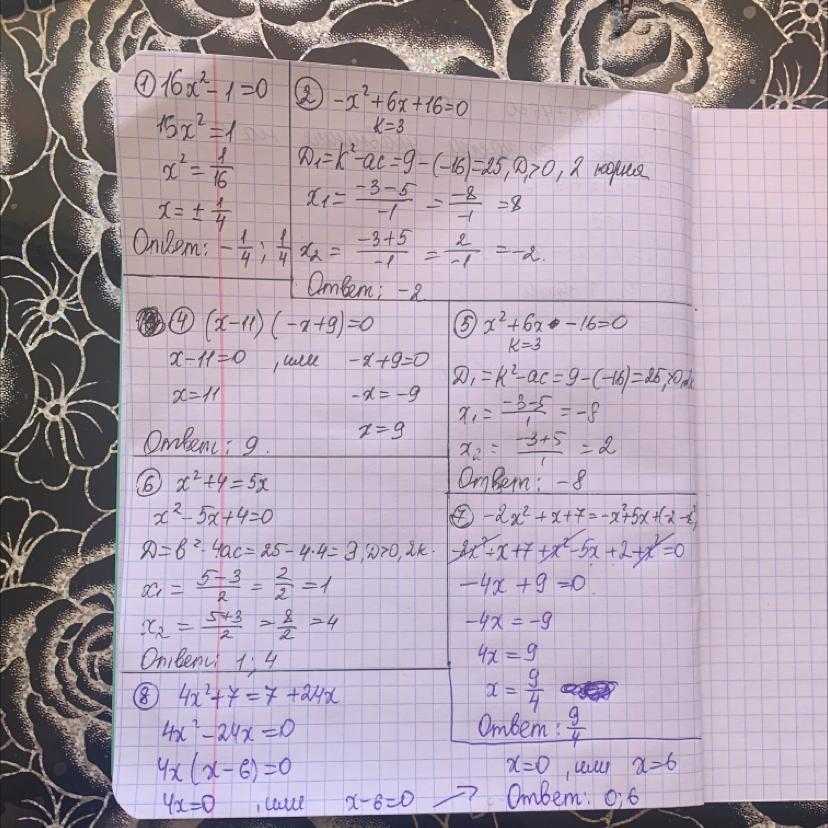 ① 16x² - 1 = 0
15x² = 1
x² = 1/16
x = ± 1/4
Ответ: -1/4; 1/4
② -x² + 6x + 16 = 0
K=3
D₁ = k² - ac = 9 - (-16) = 25, D₁>0, 2 корня
x₁ = (-3-5)/(-1) = (-8)/(-1) = 8
x₂ = (-3+5)/(-1) = 2/(-1) = -2.
Ответ: -2
④ (x-11)(-x+9)=0
x-11=0, или -x+9=0
x=11 -x=-9
x=9
Ответ: 9.
⑤ x² + 6x - 16 = 0
K=3
D₁ = k² - ac = 9 - (-16) = 25, >0, 2к
x₁ = (-3-5)/1 = -8
x₂ = (-3+5)/1 = 2
Ответ: -8
⑥ x² + 4 = 5x
x² - 5x + 4 = 0
D = b² - 4ac = 25 - 4·4 = 9, D>0, 2к.
x₁ = (5-3)/2 = 2/2 = 1
x₂ = (5+3)/2 = 8/2 = 4
Ответ: 1; 4
⑦ -2x² + x + 7 = -x² + 5x + (-2 - x²)
-2x² + x + 7 + x² - 5x + 2 + x² = 0
-4x + 9 = 0
-4x = -9
4x = 9
x = 9/4
Ответ: 9/4
⑧ 4x² + 7 = 7 + 24x
4x² - 24x = 0
4x(x-6)=0
4x=0, или x-6=0 →
x=0, или x=6
Ответ: 0; 6